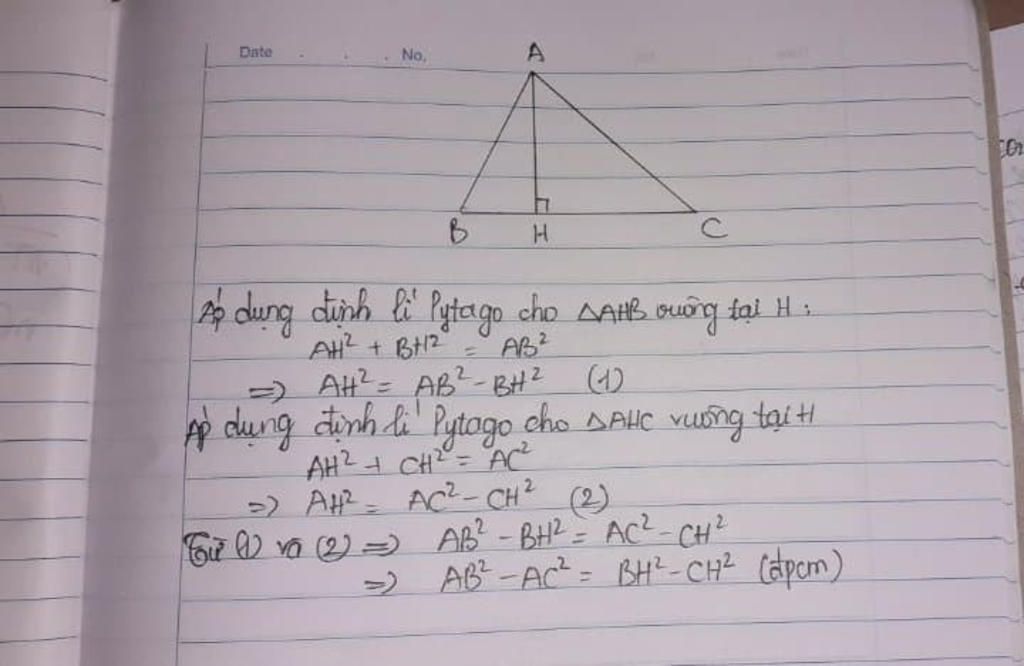 Date . . . No.
A
B H C
Áp dụng định lí Pytago cho △AHB vuông tại H :
AH² + BH² = AB²
=> AH² = AB² - BH² (1)
Áp dụng định lí Pytago cho △AHC vuông tại H
AH² + CH² = AC²
=> AH² = AC² - CH² (2)
Từ (1) và (2) => AB² - BH² = AC² - CH²
=> AB² - AC² = BH² - CH² (đpcm)